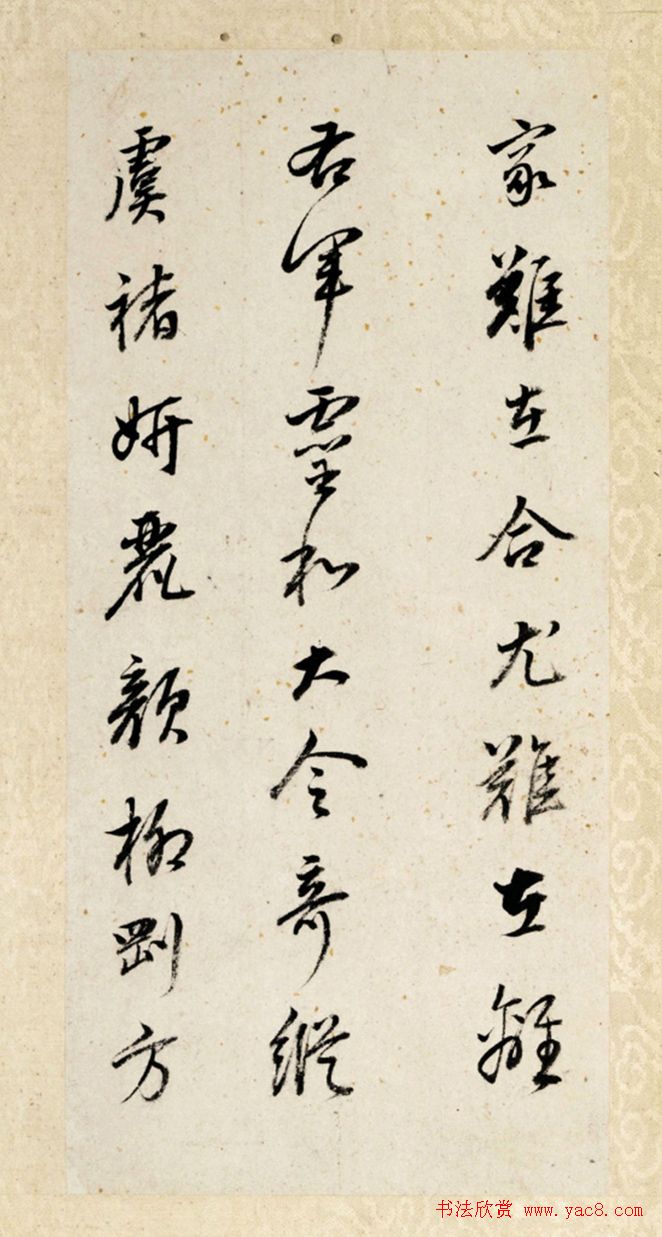 家難在合尤難在離
右軍靈和大令奇縱
虞褚妍麗顏柳剛方
书法欣赏 www.yac8.com